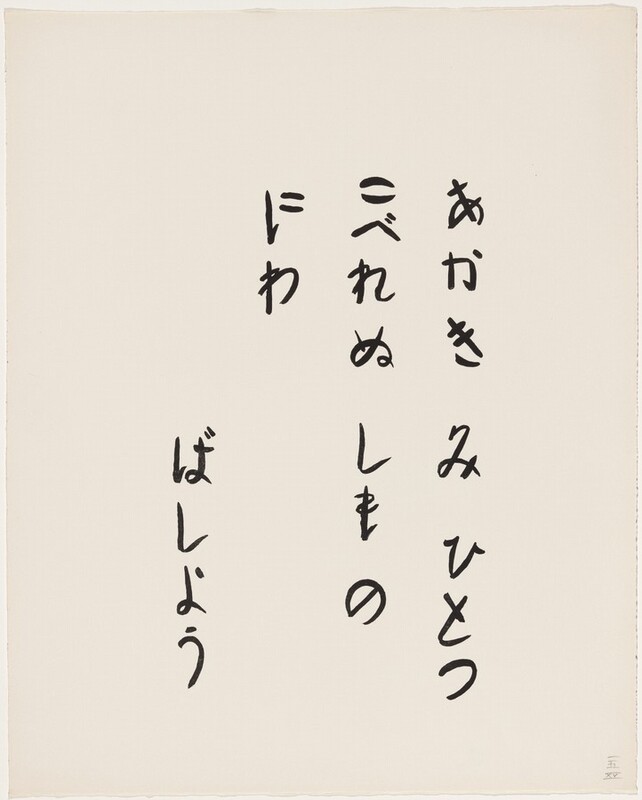 あかき み ひとつ
こべれぬ しもの
にわ
ばしよう